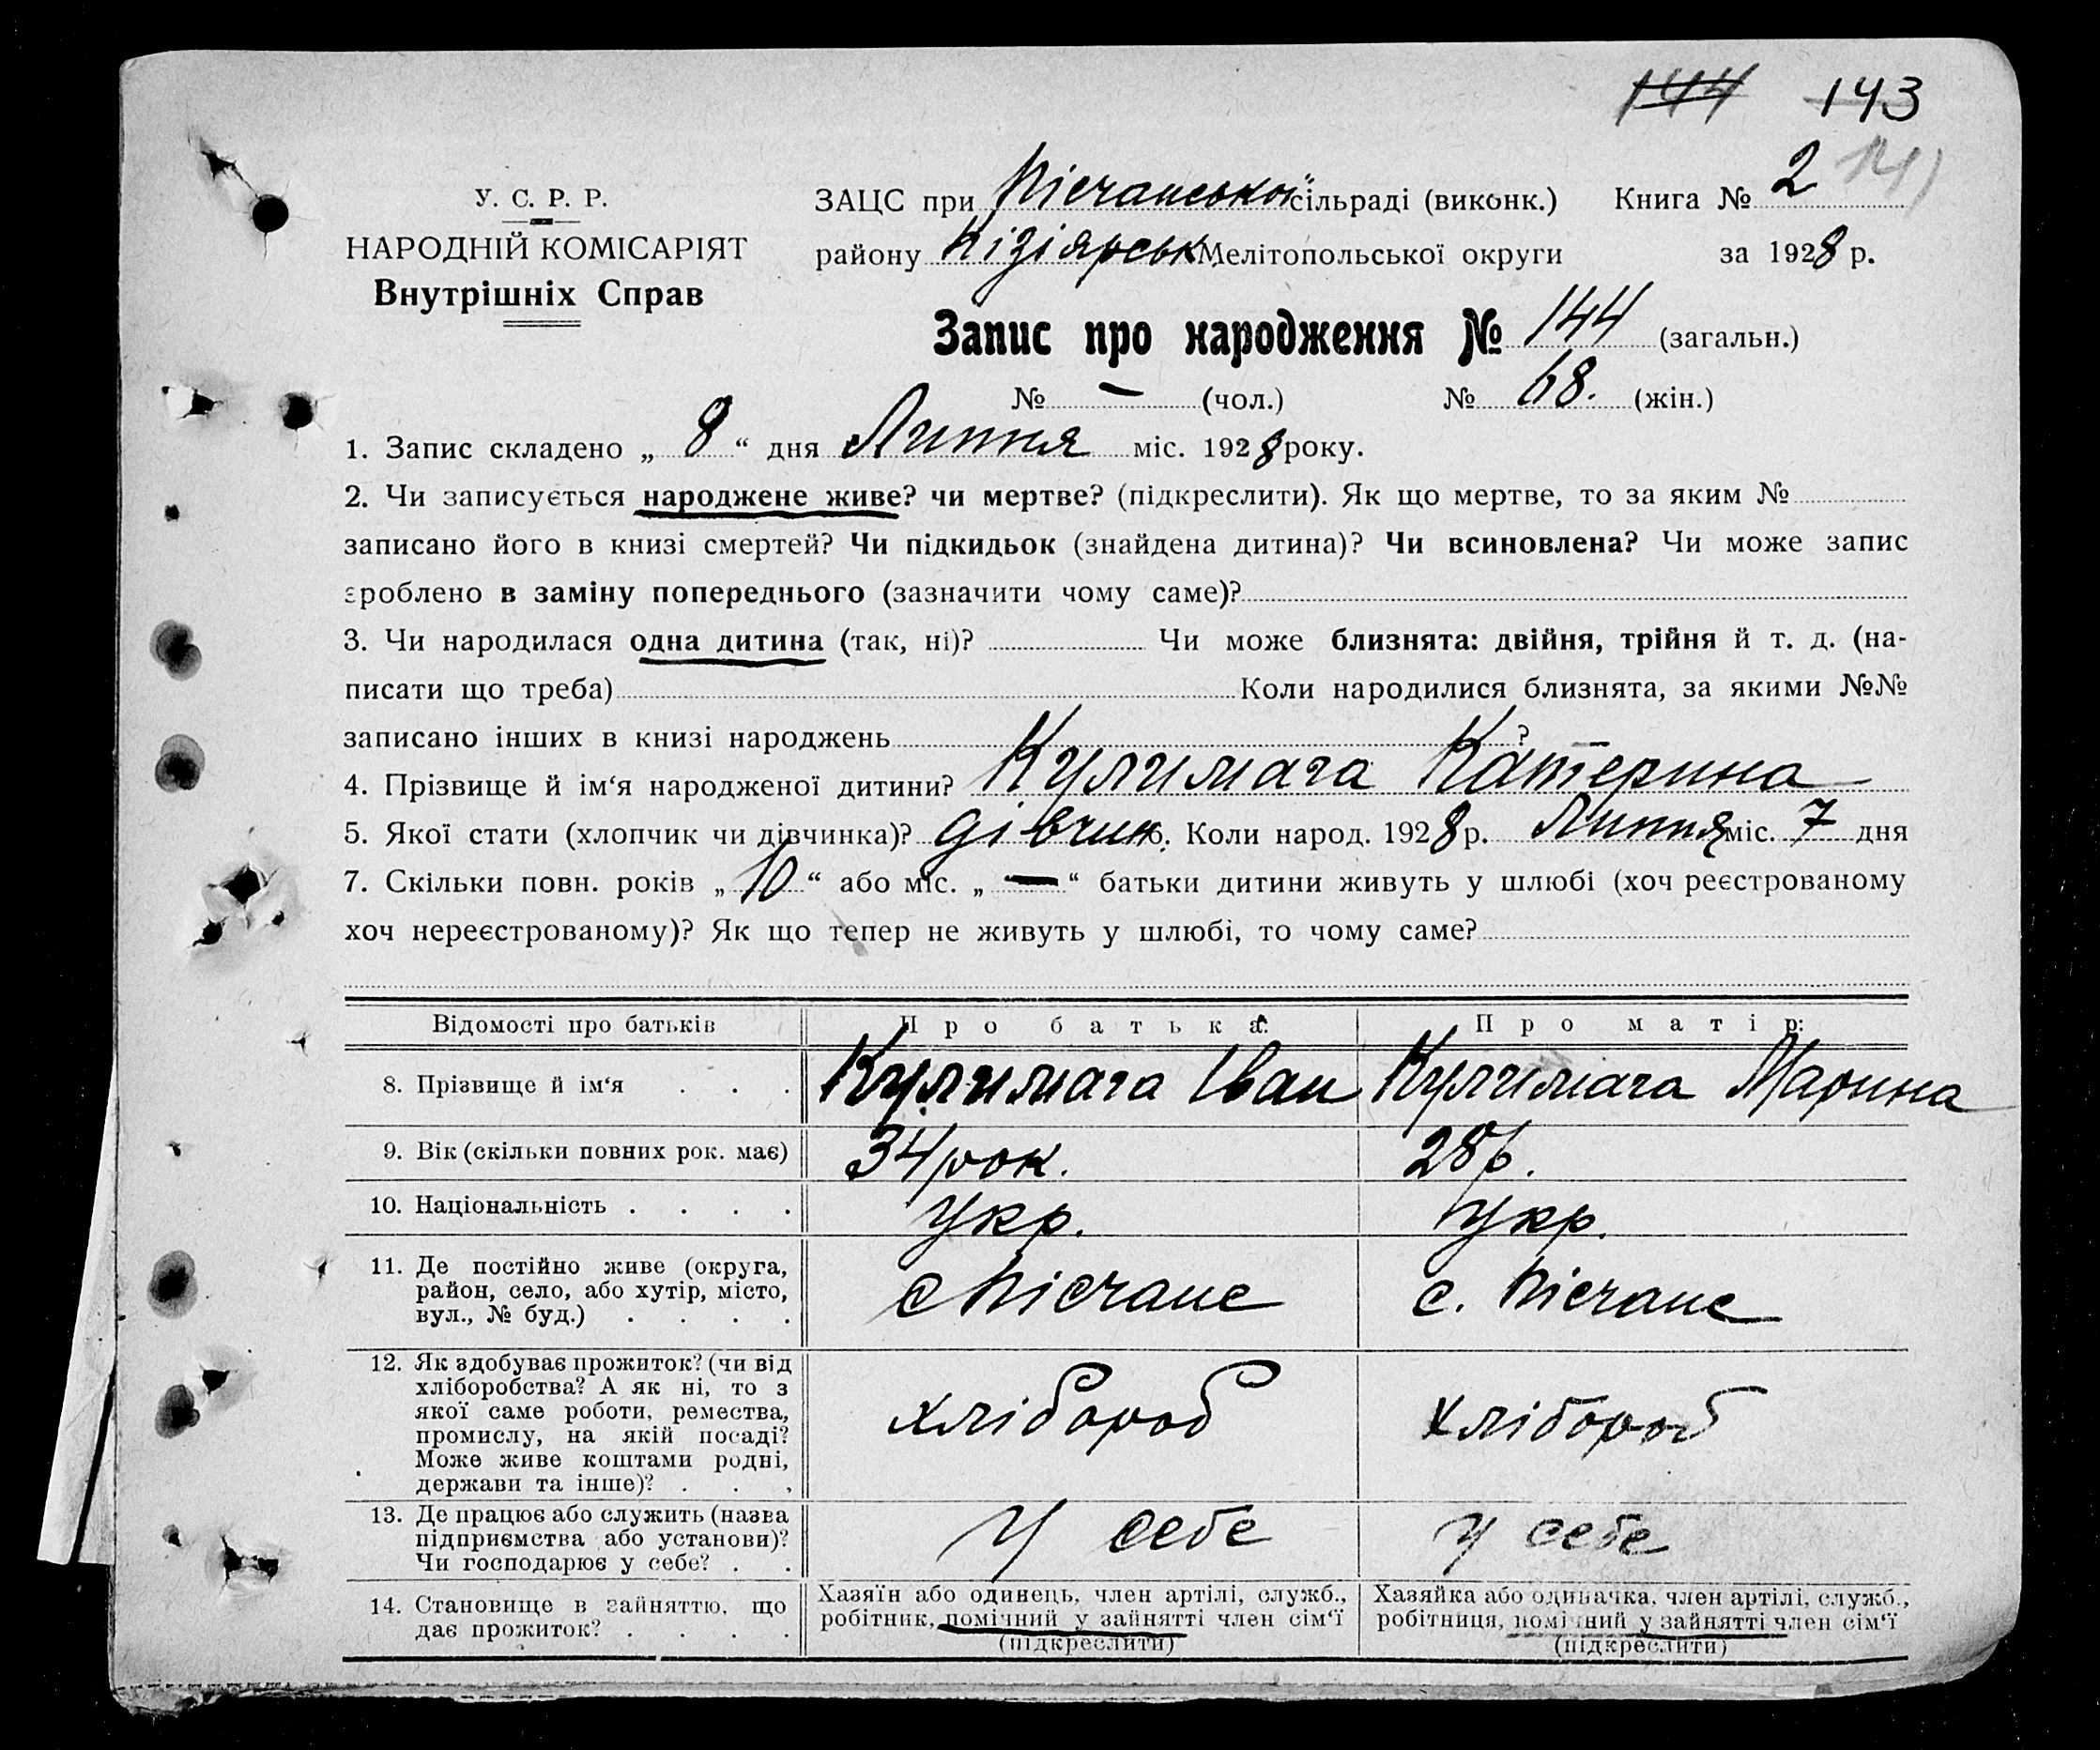 144 143
У. С. Р. Р.
НАРОДНІЙ КОМІСАРІЯТ
Внутрішніх Справ
ЗАЦС при Пісчанської сільраді (виконк.) Книга № 2 141
району Кізіярськ Мелітопольської округи за 1928 р.
Запис про народження № 144 (загальн.)
№ – (чол.) № 68. (жін.)
1. Запис складено „ 8 “ дня Липня міс. 1928 року.
2. Чи записується народжене живе? чи мертве? (підкреслити). Як що мертве, то за яким №
записано його в книзі смертей? Чи підкидьок (знайдена дитина)? Чи всиновлена? Чи може запис
зроблено в заміну попереднього (зазначити чому саме)?
3. Чи народилася одна дитина (так, ні)? Чи може близнята: двійня, трійня й т. д. (на-
писати що треба) Коли народилися близнята, за якими №№
записано інших в книзі народжень ?
4. Прізвище й ім‘я народженої дитини? Кулимага Катерина
5. Якої стати (хлопчик чи дівчинка)? дівчин 6. Коли народ. 1928 р. Липня міс. 7 дня
7. Скільки повн. років „ 10 “ або міс. „ – “ батьки дитини живуть у шлюбі (хоч реєстрованому
хоч нереєстрованому)? Як що тепер не живуть у шлюбі, то чому саме?
Відомості про батьків Про батька: Про матір:
8. Прізвище й ім‘я . . . Кулимага Іван Кулимага Марина
9. Вік (скільки повних рок. має) 34 рок. 28 р.
10. Національність . . . . Укр. Укр.
11. Де постійно живе (округа,
район, село, або хутір, місто,
вул., № буд.) . . . . с Пісчане с. Пісчане
12. Як здобуває прожиток? (чи від
хліборобства? А як ні, то з
якої саме роботи, ремества,
промислу, на якій посаді?
Може живе коштами родні,
держави та інше)? . . . хлібороб хлібороб
13. Де працює або служить (назва
підприємства або установи)?
Чи господарює у себе? . . у себе у себе
14. Становище в зайняттю, що
дає прожиток? . . . .
Хазяїн або одинець, член артілі, служб.,
робітник, помічний у зайнятті член сім‘ї
(підкреслити)
Хазяйка або одиначка, член артілі, служб.,
робітниця, помічний у зайнятті член сім‘ї
(підкреслити)